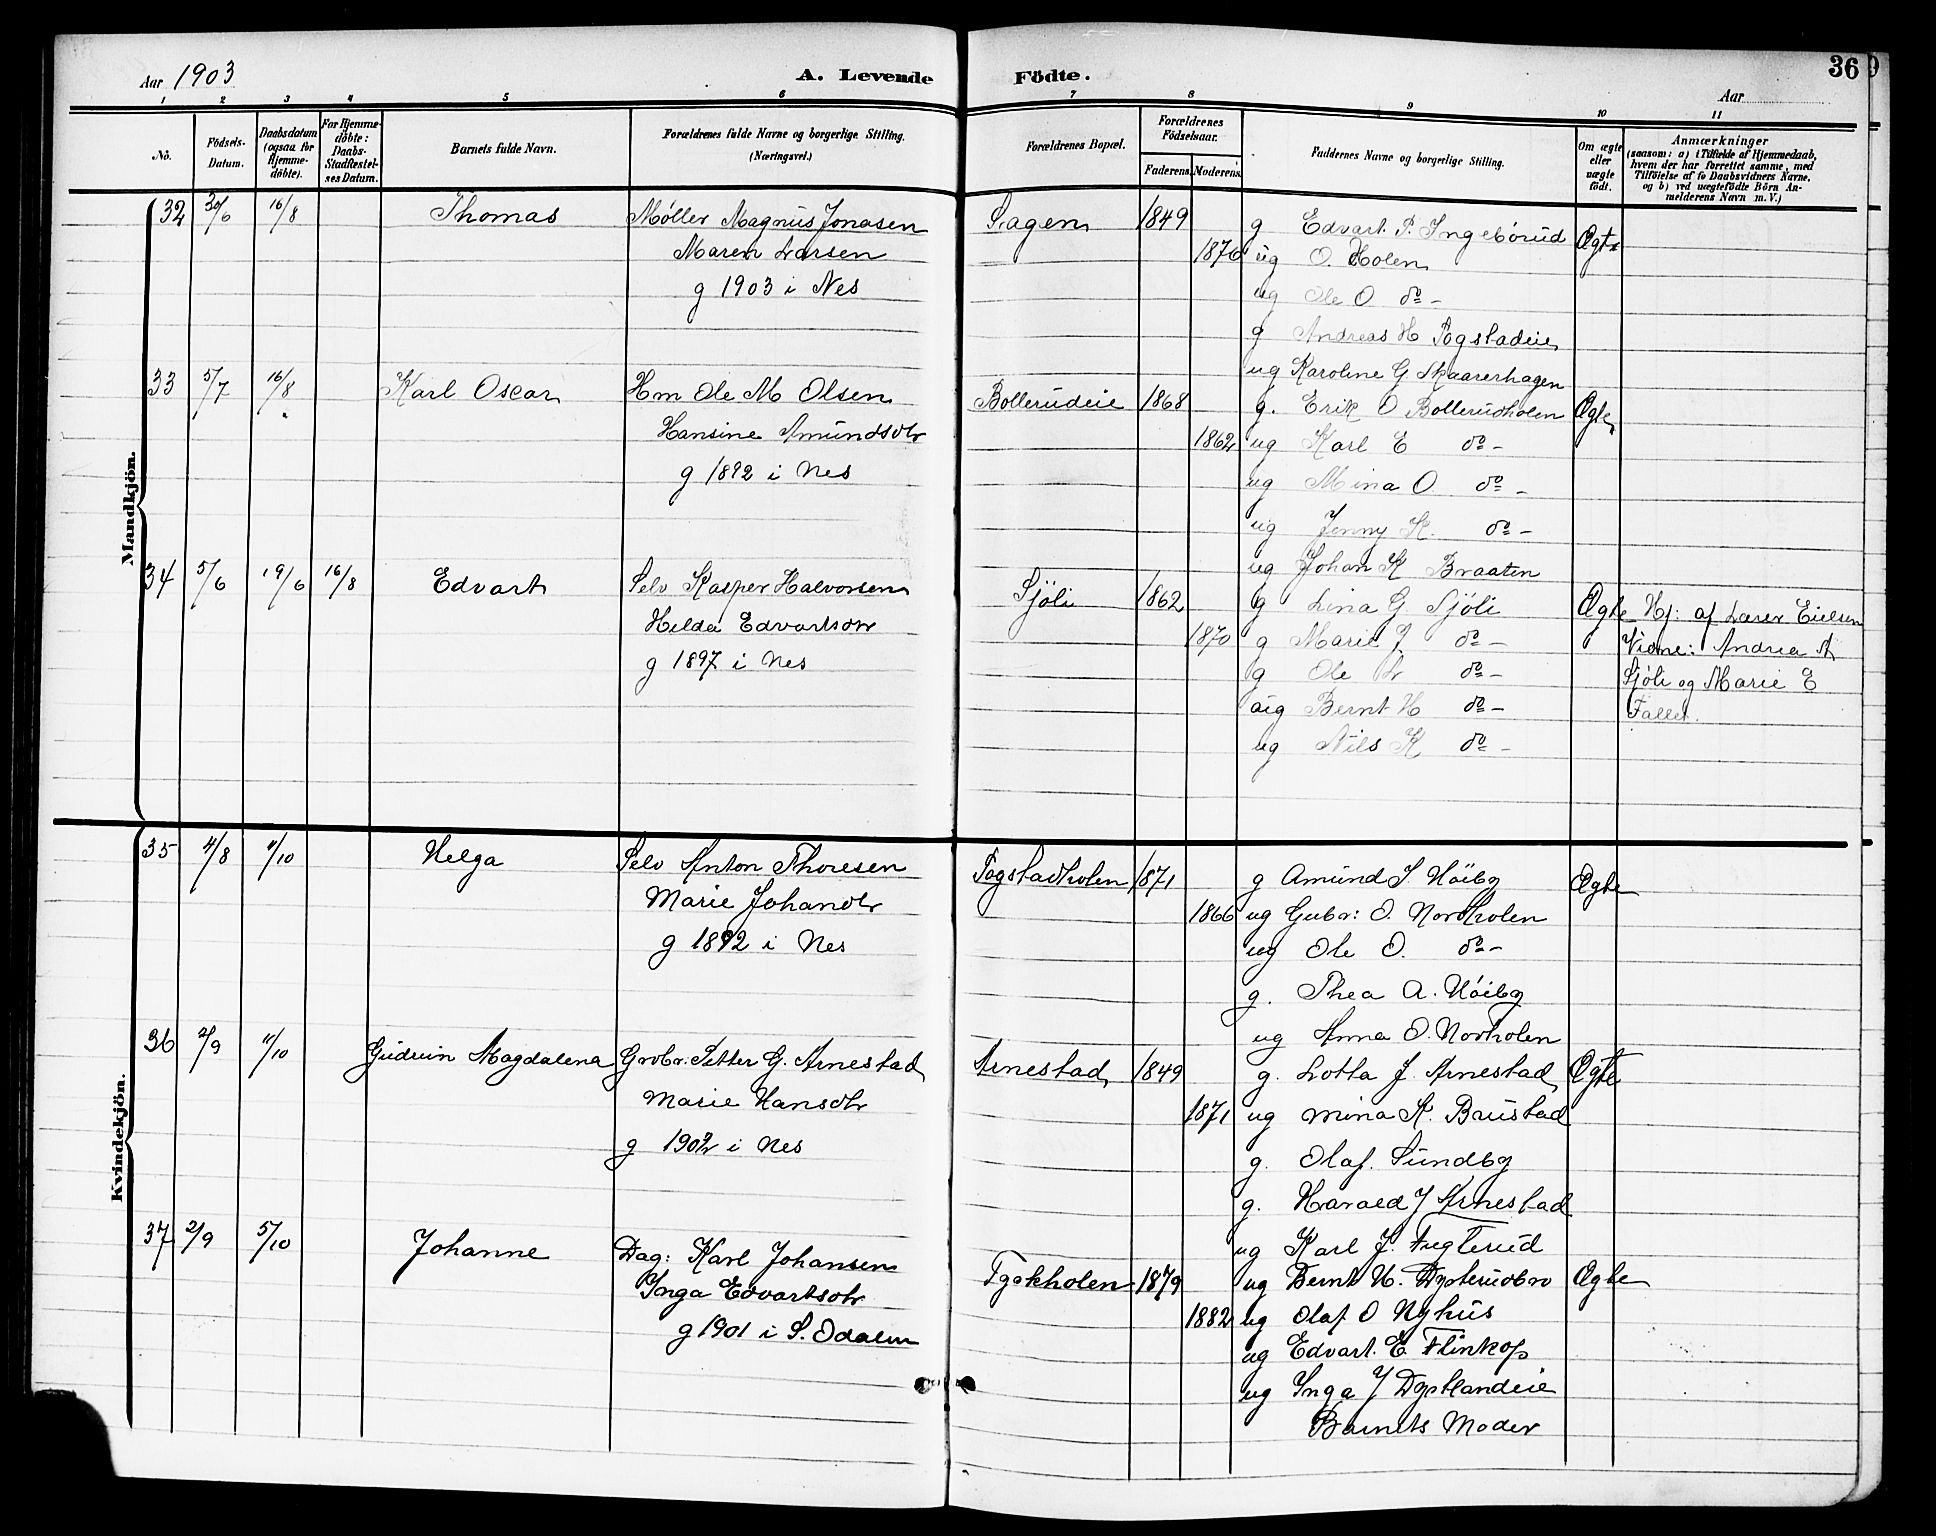 Aar 1903
A. Levende Födte.
36
Aar
1 2 3 4 5 6 7 8 9 10 11
No.
Födsels-Datum.
Daabsdatum (ogsaa for Hjemme-döbte).
For Hjemme-döbte: Daabs-Stadfæstel-ses Datum.
Barnets fulde Navn.
Forældrenes fulde Navne og borgerlige Stilling.
(Næringsvei.)
Forældrenes Bopæl.
Forældrenes Födselsaar.
Faderens. Moderens.
Faddernes Navne og borgerlige Stilling.
Om ægte eller uægte födt.
Anmærkninger
(saasom: a) i Tilfælde af Hjemmedaab,
hvem der har forrettet samme, med
Tilföielse af to Daabsvidners Navne,
og b) ved uægtefödte Börn An-
melderens Navn m. V.)
Mandkjön.
32 30/6 16/8 Thomas Møller Magnus Jonasen Sagen 1849 g Edvart P. Ingebörud Ægte
Maren Larsen 1876 ug O. Holen
g 1903 i Nes ug Ole O do -
g Andreas H Fogstadeie
ug Karoline G Skaarerhagen
33 5/7 16/8 Karl Oscar Hm Ole M Olsen Bollerudeie 1868 g. Erik O Bollerudholen Ægte
Hansine Amundsdtr 1862 ug Karl E do -
g 1892 i Nes ug Mina O do -
ug Jenny K. do -
ug Johan K Braaten
34 5/6 19/6 16/8 Edvart Selv Kasper Halvorsen Sjöli 1862 g Lina G Sjöli Ægte Hj: af Lærer Eielsen
Hilda Edvartsdtr 1870 g Marie J. do - Vidne: Andrea A
g 1897 i Nes g Ole L do - Sjöli og Marie E
ug Bernt H do - Fallet.
ug Nils K do -
Kvindekjön.
35 4/8 4/10 Helga Selv Anton Thoresen Fogstadholen 1871 g Amund S. Höiby Ægte
Marie Johandtr 1866 ug Gubr: O. Nordholen
g 1892 i Nes ug Ole O. do -
g. Thea A. Höiby
ug Anna O. Nordholen
36 2/9 4/10 Gudrun Magdalena Grdbr. Petter G. Arnestad Arnestad 1849 g. Lotta J. Arnestad Ægte
Marie Hansdtr 1871 ug Mina K. Brustad
g 1902 i Nes g. Olaf. Sundby
g. Harald J Arnestad
ug Karl J. Fuglerud
37 2/9 5/10 Johanne Dag: Karl Johansen 1879 ug Bernt H. Ægte
Inga Edvartsdtr 1882 ug Olaf O Nyhus
g 1901 i S. Odalen ug Edvart. E
ug Inga J
Barnets Moder